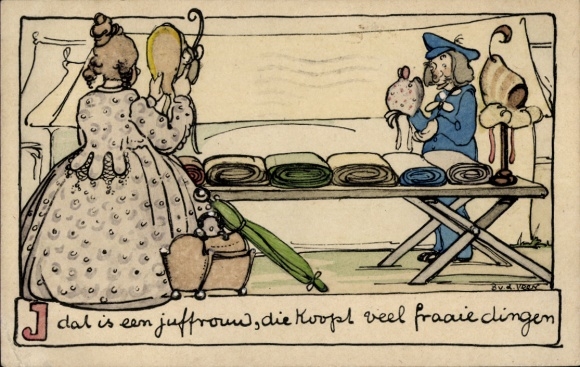 B.V.D. VOEN
J dat is een juffrouw, die koopt veel fraaie dingen